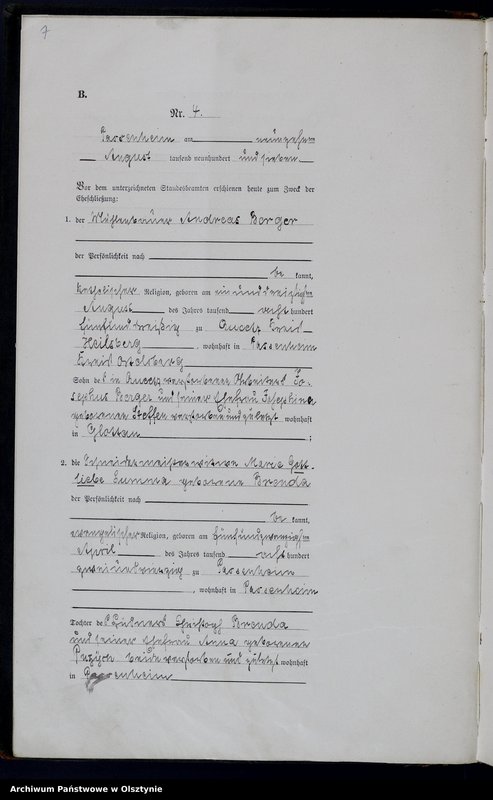 7
B.
Nr. 4.
Passenheim am neunzehn
August tausend neunhundert und sieben
Vor dem unterzeichneten Standesbeamten erschienen heute zum Zweck der
Eheschließung:
1. der Mühlenbauer Andreas Berger
der Persönlichkeit nach
be kannt,
katholischer Religion, geboren am ein und dreißigsten
August des Jahres tausend acht hundert
fünfund dreißig zu Queetz Kreis
Heilsberg, wohnhaft in Passenheim
Kreis Ortelsberg
Sohn des in Queetz verstorbenen Arbeiters Jo-
sephus Berger und seiner Ehefrau Josephine
geborenen Steffen verstorben und zuletzt wohnhaft
in Glottau;
2. die Schneidermeisterwitwe Marie Gott-
liebe geborene Brenda
der Persönlichkeit nach
be kannt,
evangelischer Religion, geboren am fünfundzwanzigsten
April des Jahres tausend acht hundert
zwei und vierzig zu Passenheim
, wohnhaft in Passenheim
Tochter des Christoph Brenda
und seiner Ehefrau Anna geborenen
beide verstorben und zuletzt wohnhaft
in Passenheim
Archiwum Państwowe w Olsztynie